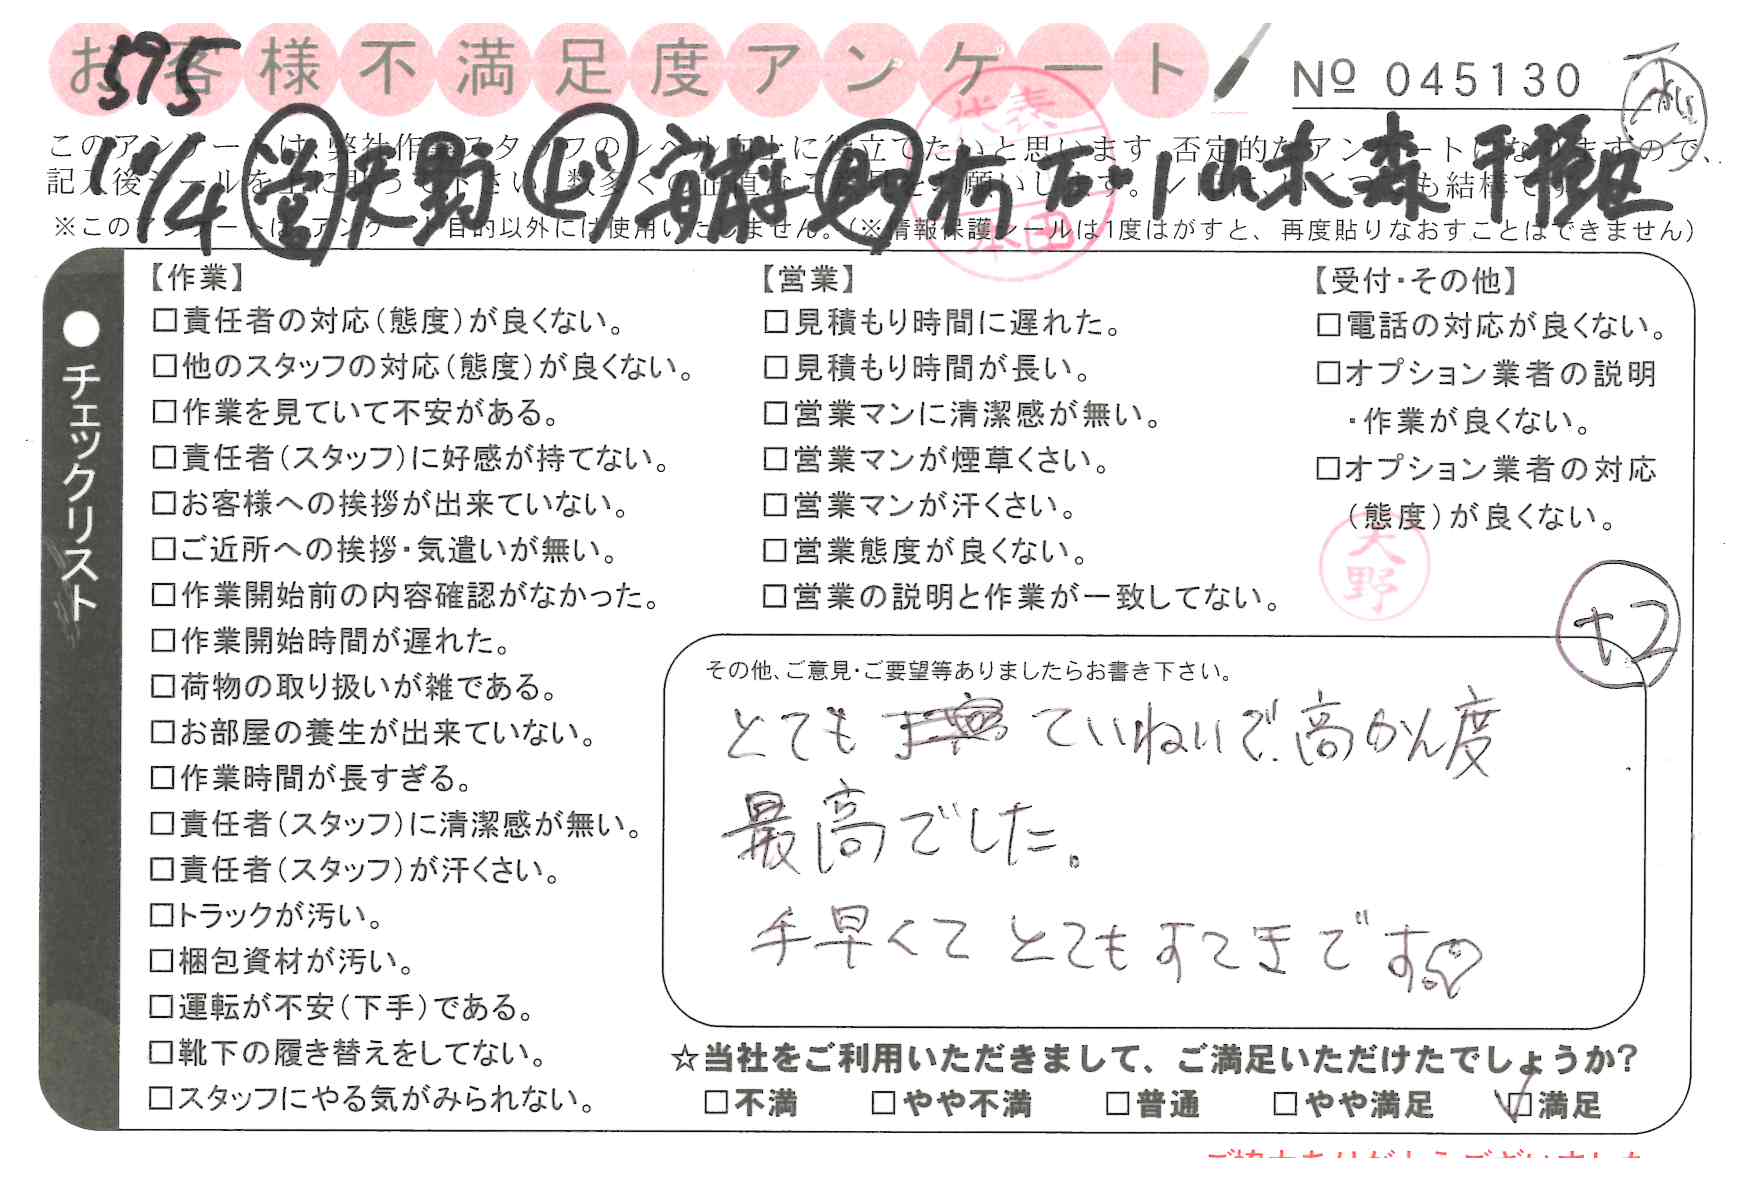 お客様不満足度アンケート
575
№ 045130
このアンケートは、弊社作業スタッフのレベル向上に役立てたいと思います。否定的なアンケートになりますので、
11/4 営 天野 安藤 助
千種区
※このアンケートは、アンケート目的以外には使用いたしません。(※情報保護シールは1度はがすと、再度貼りなおすことはできません)
代表
本田
●チェックリスト
【作業】
□責任者の対応(態度)が良くない。
□他のスタッフの対応(態度)が良くない。
□作業を見ていて不安がある。
□責任者(スタッフ)に好感が持てない。
□お客様への挨拶が出来ていない。
□ご近所への挨拶・気遣いが無い。
□作業開始前の内容確認がなかった。
□作業開始時間が遅れた。
□荷物の取り扱いが雑である。
□お部屋の養生が出来ていない。
□作業時間が長すぎる。
□責任者(スタッフ)に清潔感が無い。
□責任者(スタッフ)が汗くさい。
□トラックが汚い。
□梱包資材が汚い。
□運転が不安(下手)である。
□靴下の履き替えをしてない。
□スタッフにやる気がみられない。
【営業】
□見積もり時間に遅れた。
□見積もり時間が長い。
□営業マンに清潔感が無い。
□営業マンが煙草くさい。
□営業マンが汗くさい。
□営業態度が良くない。
□営業の説明と作業が一致してない。
【受付・その他】
□電話の対応が良くない。
□オプション業者の説明
・作業が良くない。
□オプション業者の対応
(態度)が良くない。
天野
+2
その他、ご意見・ご要望等ありましたらお書き下さい。
とても ていねいで、高かん度
最高でした。
手早くて とてもすてきです♡
☆当社をご利用いただきまして、ご満足いただけたでしょうか?
□不満 □やや不満 □普通 □やや満足 ☑満足
ご協力ありがとうございました